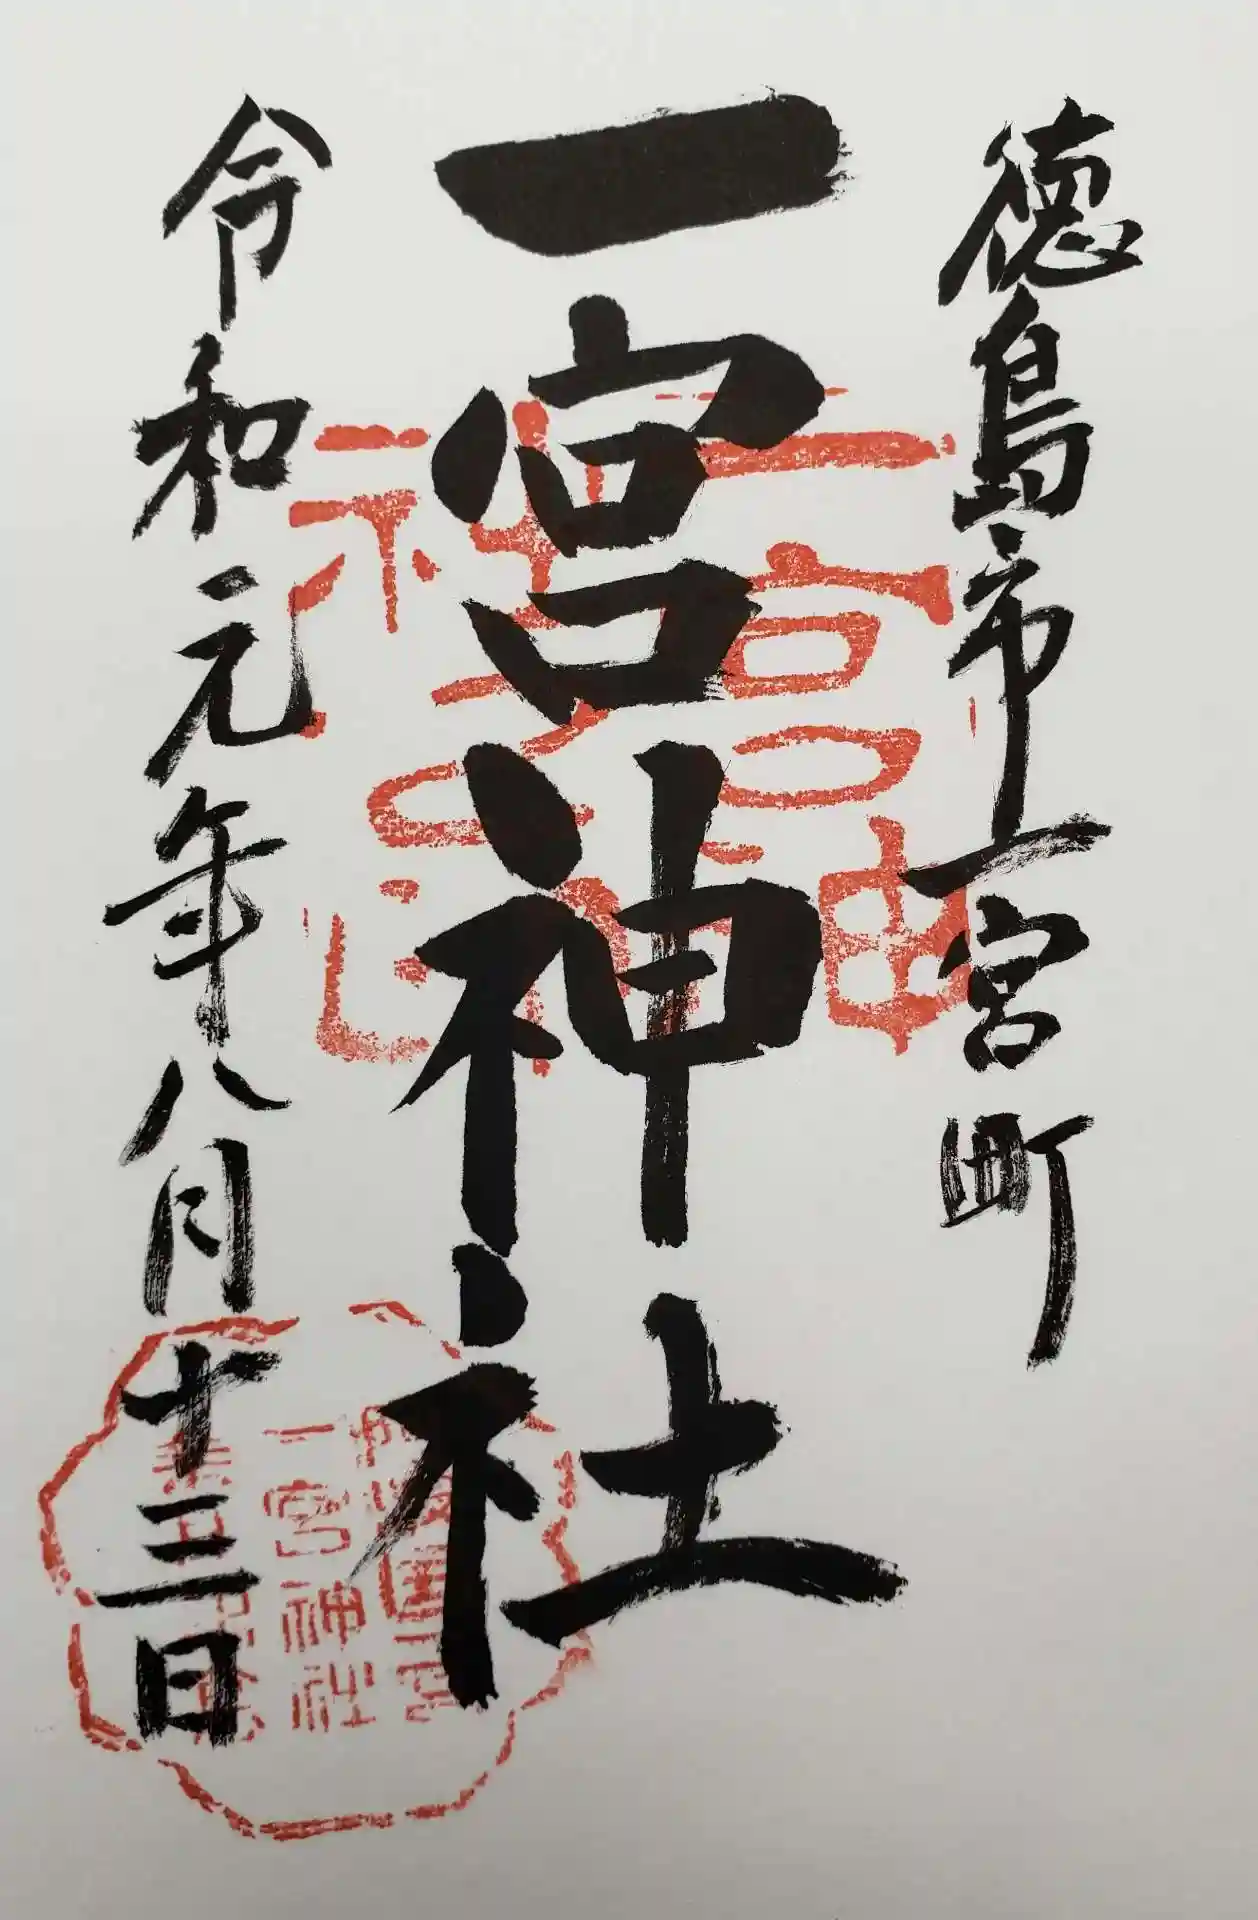 徳島市一宮町
一宮神社
令和元年八月十三日
一宮神
社之印
一宮神社